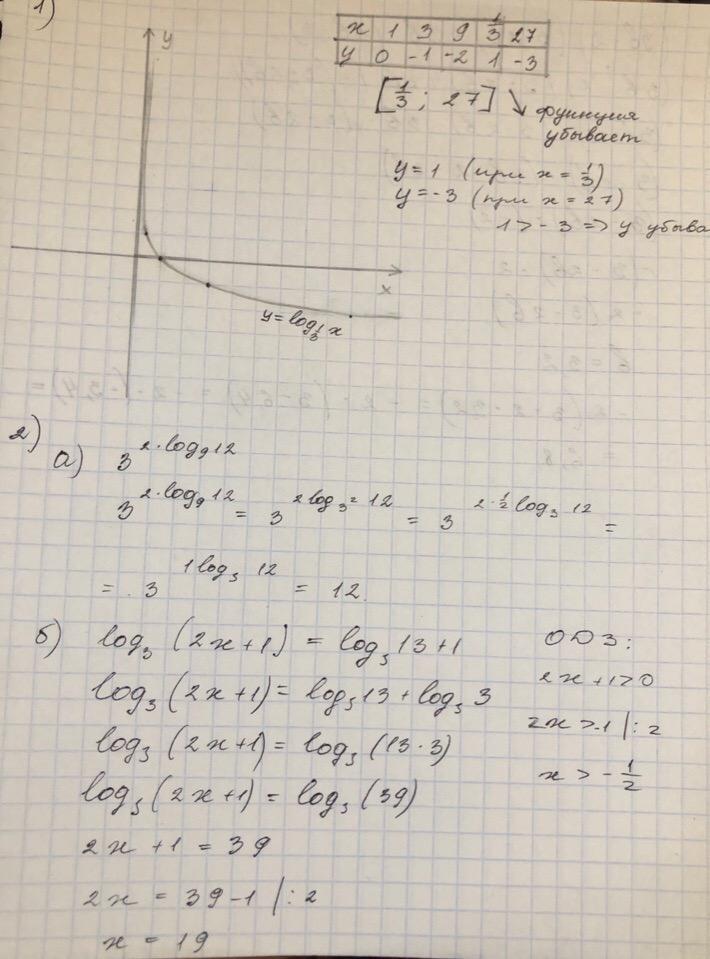 1)
y
x 1 3 9 1/3 27
y 0 -1 -2 1 -3
[1/3; 27] ↘ функция
убывает
y = 1 (при x = 1/3)
y = -3 (при x = 27)
1 > -3 => y убыва
x
y = log_{1/3} x
2)
а) 3^{2·log_9 12}
3^{2·log_9 12} = 3^{2 log_{3^2} 12} = 3^{2·1/2 log_3 12} =
= 3^{1 log_3 12} = 12.
б) log_3 (2x+1) = log_3 13 + 1
log_3 (2x+1) = log_3 13 + log_3 3
log_3 (2x+1) = log_3 (13·3)
log_3 (2x+1) = log_3 (39)
2x + 1 = 39
2x = 39 - 1 | : 2
x = 19
ОДЗ:
2x + 1 > 0
2x > -1 | : 2
x > - 1/2